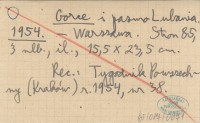 Gorce i pasmo Lubania.
1954. – Warszawa. Stron 85,
3 nlb., il., 15,5 x 23,5 cm.
Rec.: Tygodnik Powszech-
ny (Kraków) r. 1954, nr 38.